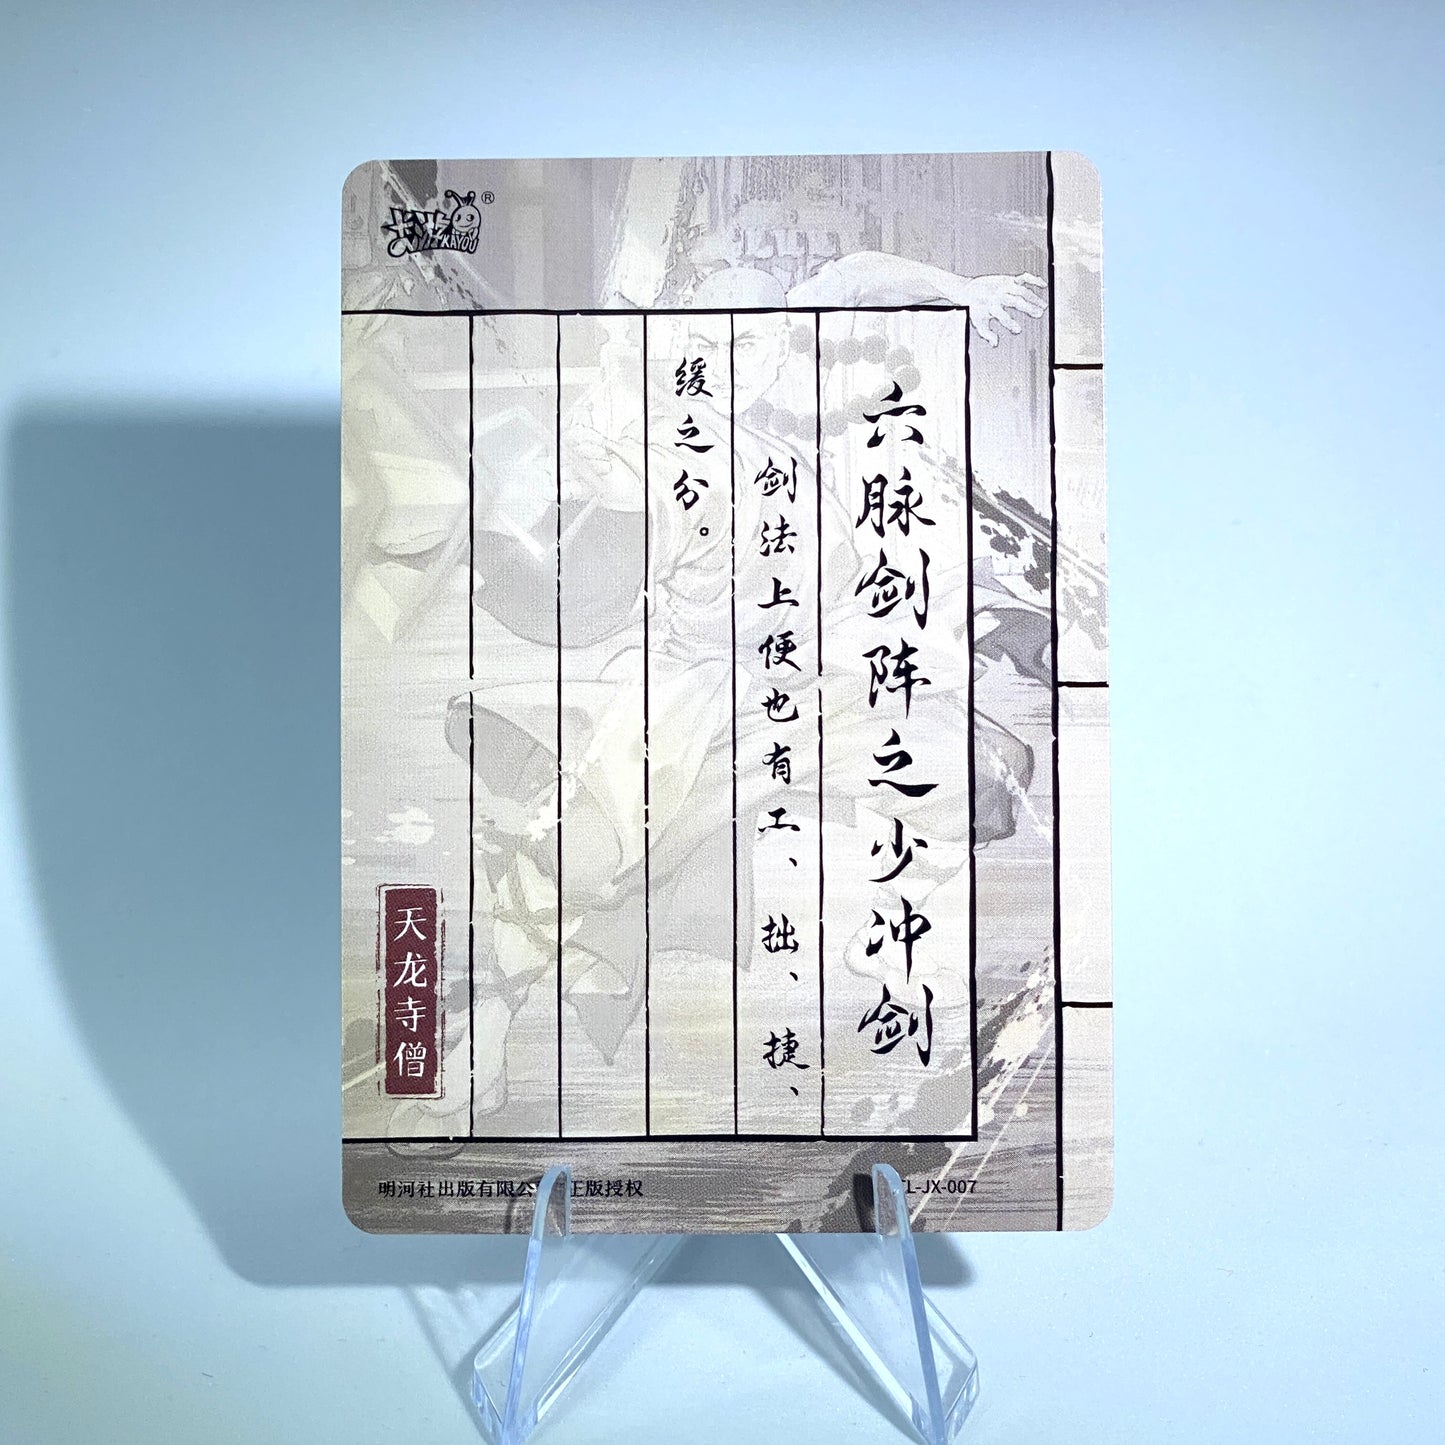 卡游
KAYOU
®
六脉剑阵之少冲剑
剑法上便也有工、拙、捷、
缓之分。
天龙寺僧
明河社出版有限公 正版授权
TL-JX-007